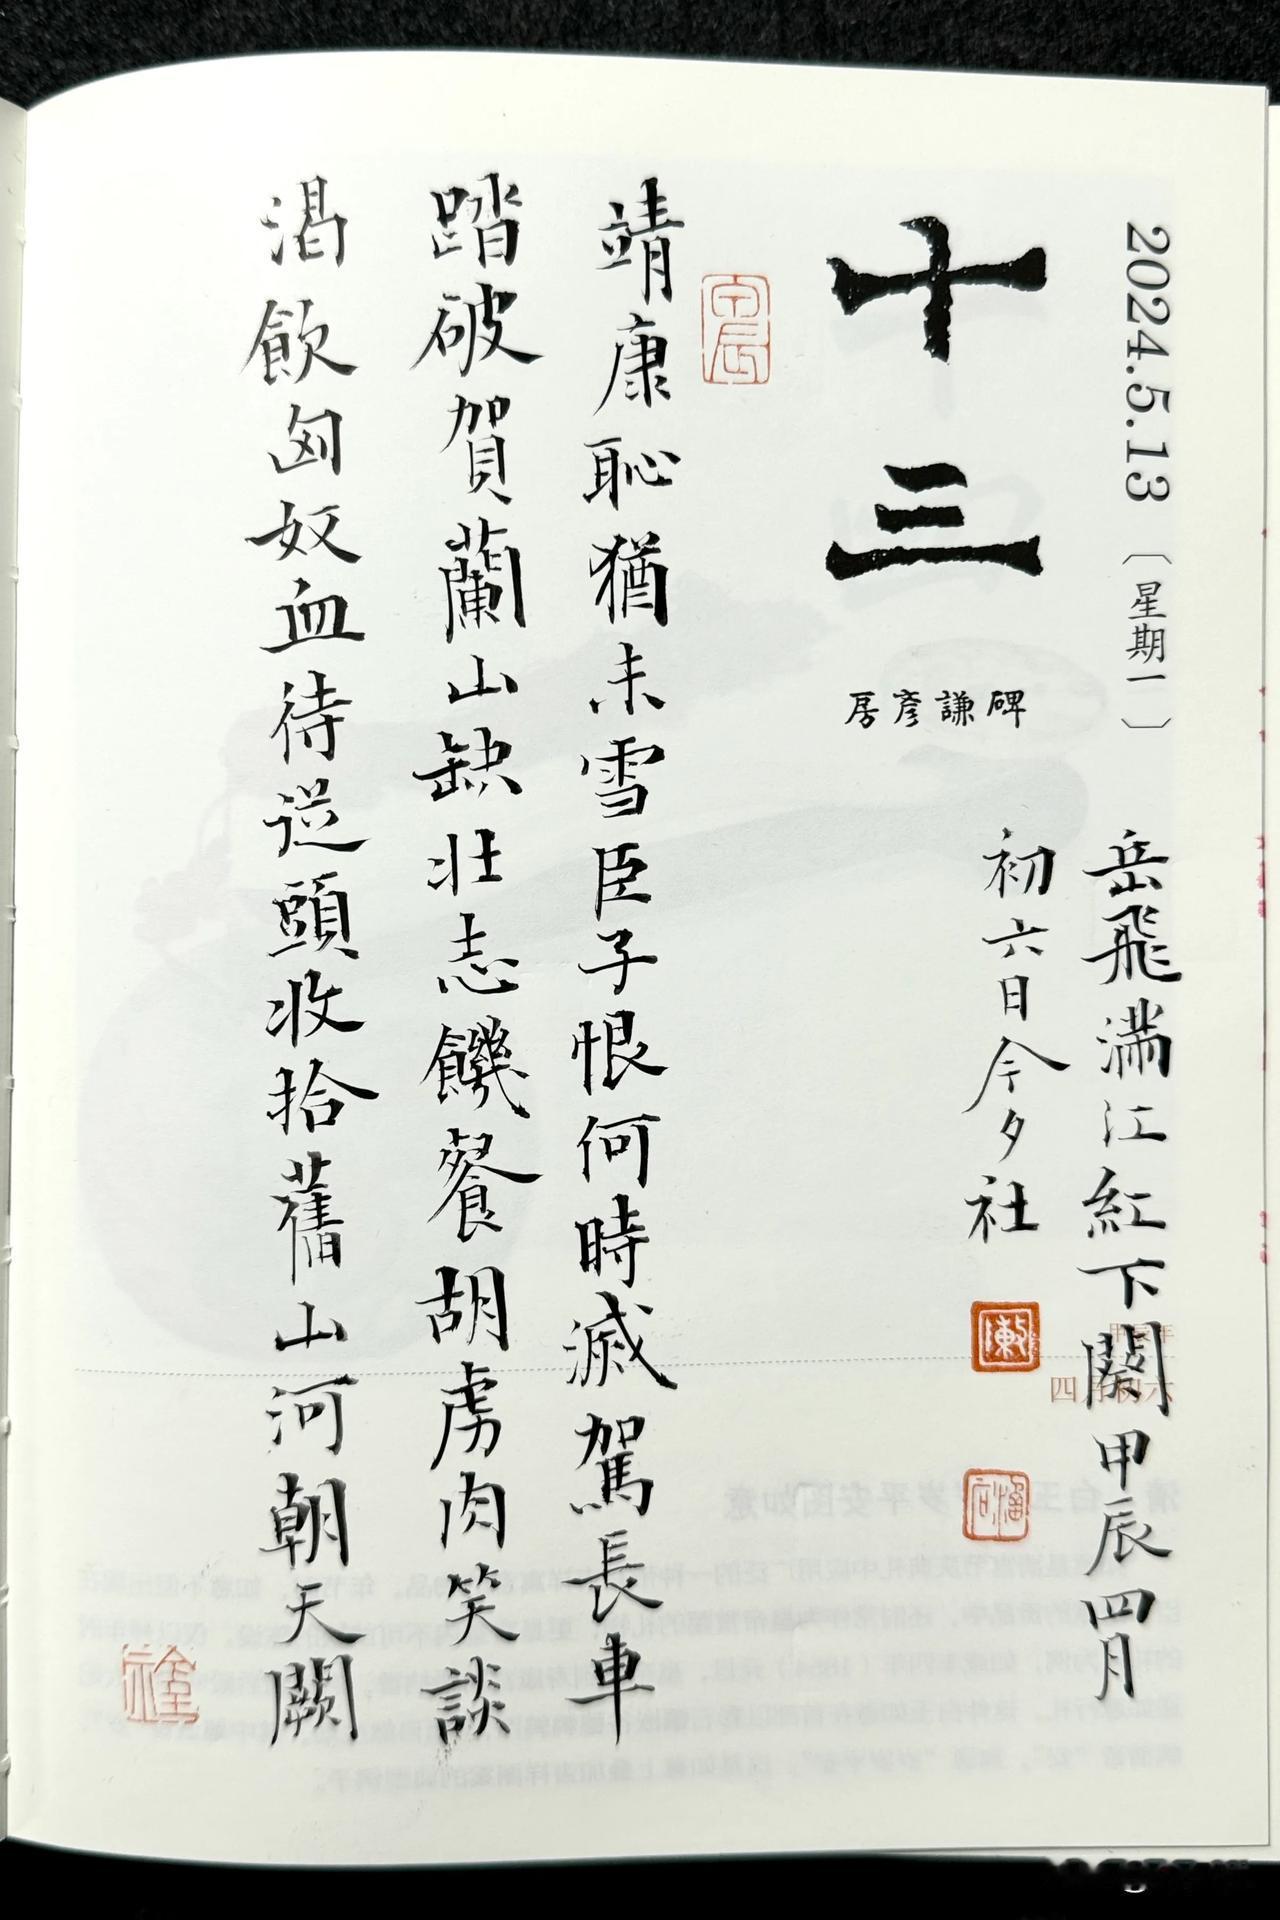 2024.5.13〔星期一〕
十三
房彥謙碑
岳飛滿江紅下闋甲辰四月
初六日今夕社
甲辰年
四月初六
靖康恥猶未雪臣子恨何時滅駕長車
踏破賀蘭山缺壯志饑餐胡虜肉笑談
渴飲匈奴血待從頭收拾舊山河朝天闕